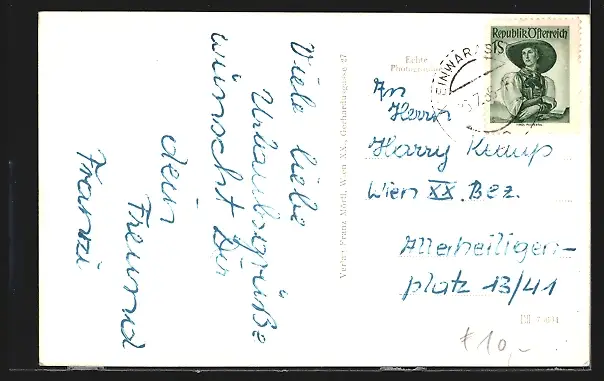 Viele liebe
Urlaubsgrüße
wünscht Dir
dein
Freund
Franzi
Verlag Franz Mörtl, Wien XX., Gerhardusgasse 27
Echte
Republik Österreich
1S
An
Herrn
Harry Knapp
Wien XX. Bez.
Allerheiligen-
platz 13/41
€10,-